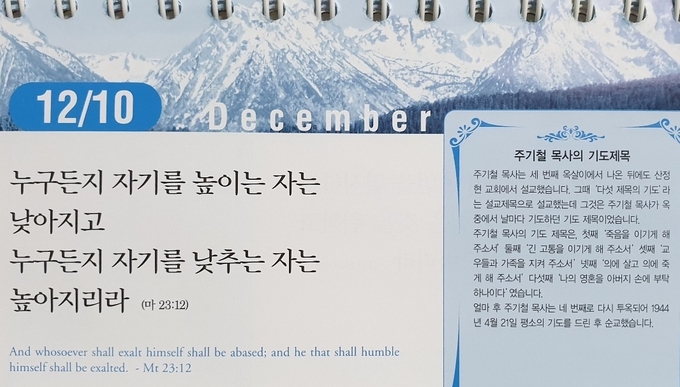 12/10
December
누구든지 자기를 높이는 자는
낮아지고
누구든지 자기를 낮추는 자는
높아지리라 (마 23:12)
And whosoever shall exalt himself shall be abased; and he that shall humble
himself shall be exalted. - Mt 23:12
주기철 목사의 기도제목
주기철 목사는 세 번째 옥살이에서 나온 뒤에도 산정
현 교회에서 설교했습니다. 그때 '다섯 제목의 기도'라
는 설교제목으로 설교했는데 그것은 주기철 목사가 옥
중에서 날마다 기도하던 기도 제목이었습니다.
주기철 목사의 기도 제목은, 첫째 '죽음을 이기게 해
주소서' 둘째 '긴 고통을 이기게 해 주소서' 셋째 '교
우들과 가족을 지켜 주소서' 넷째 '의에 살고 의에 죽
게 해 주소서' 다섯째 '나의 영혼을 아버지 손에 부탁
하나이다' 였습니다.
얼마 후 주기철 목사는 네 번째로 다시 투옥되어 1944
년 4월 21일 평소의 기도를 드린 후 순교했습니다.